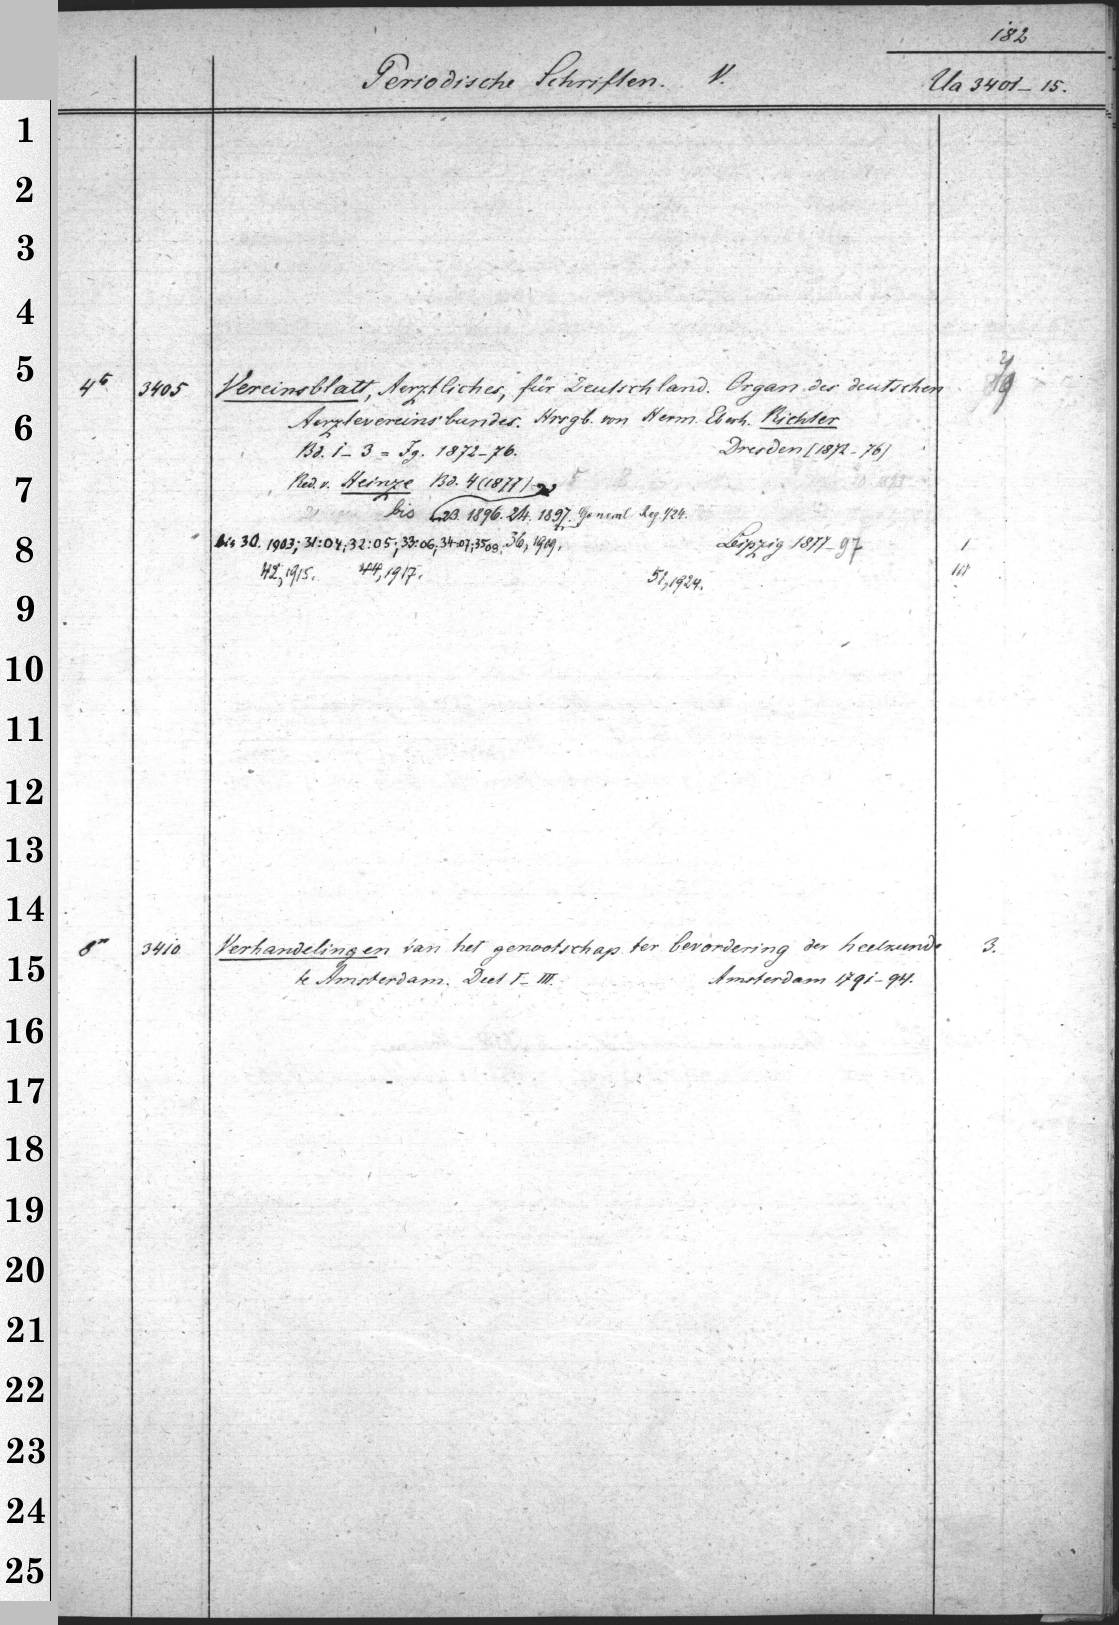 182
Periodische Schriften. V.
Ua 3401-15.
1
2
3
4
5
4° 3405 Vereinsblatt, Aerztliches, für Deutschland. Organ des deutschen
6
Aerztevereinsbundes. Hrsgb. von Herm. Eberh. Richter
Bd. 1-3 = Jg. 1872-76. Dresden [1872-76]
7
Red. v. Heinze Bd. 4 (1877)
bis 23. 1896. 24. 1897. General Reg. 1/24.
8
bis 30. 1903; 31:04; 32:05; 33:06; 34:07; 35:08; 36, 1909. Leipzig 1877-97 1
42, 1915. 44, 1917. 51, 1924. III
9
10
11
12
13
14
8° 3410 Verhandelingen van het genootschap ter bevordering der heelkunde 3.
15
te Amsterdam. Deel I-III. Amsterdam 1791-94.
16
17
18
19
20
21
22
23
24
25